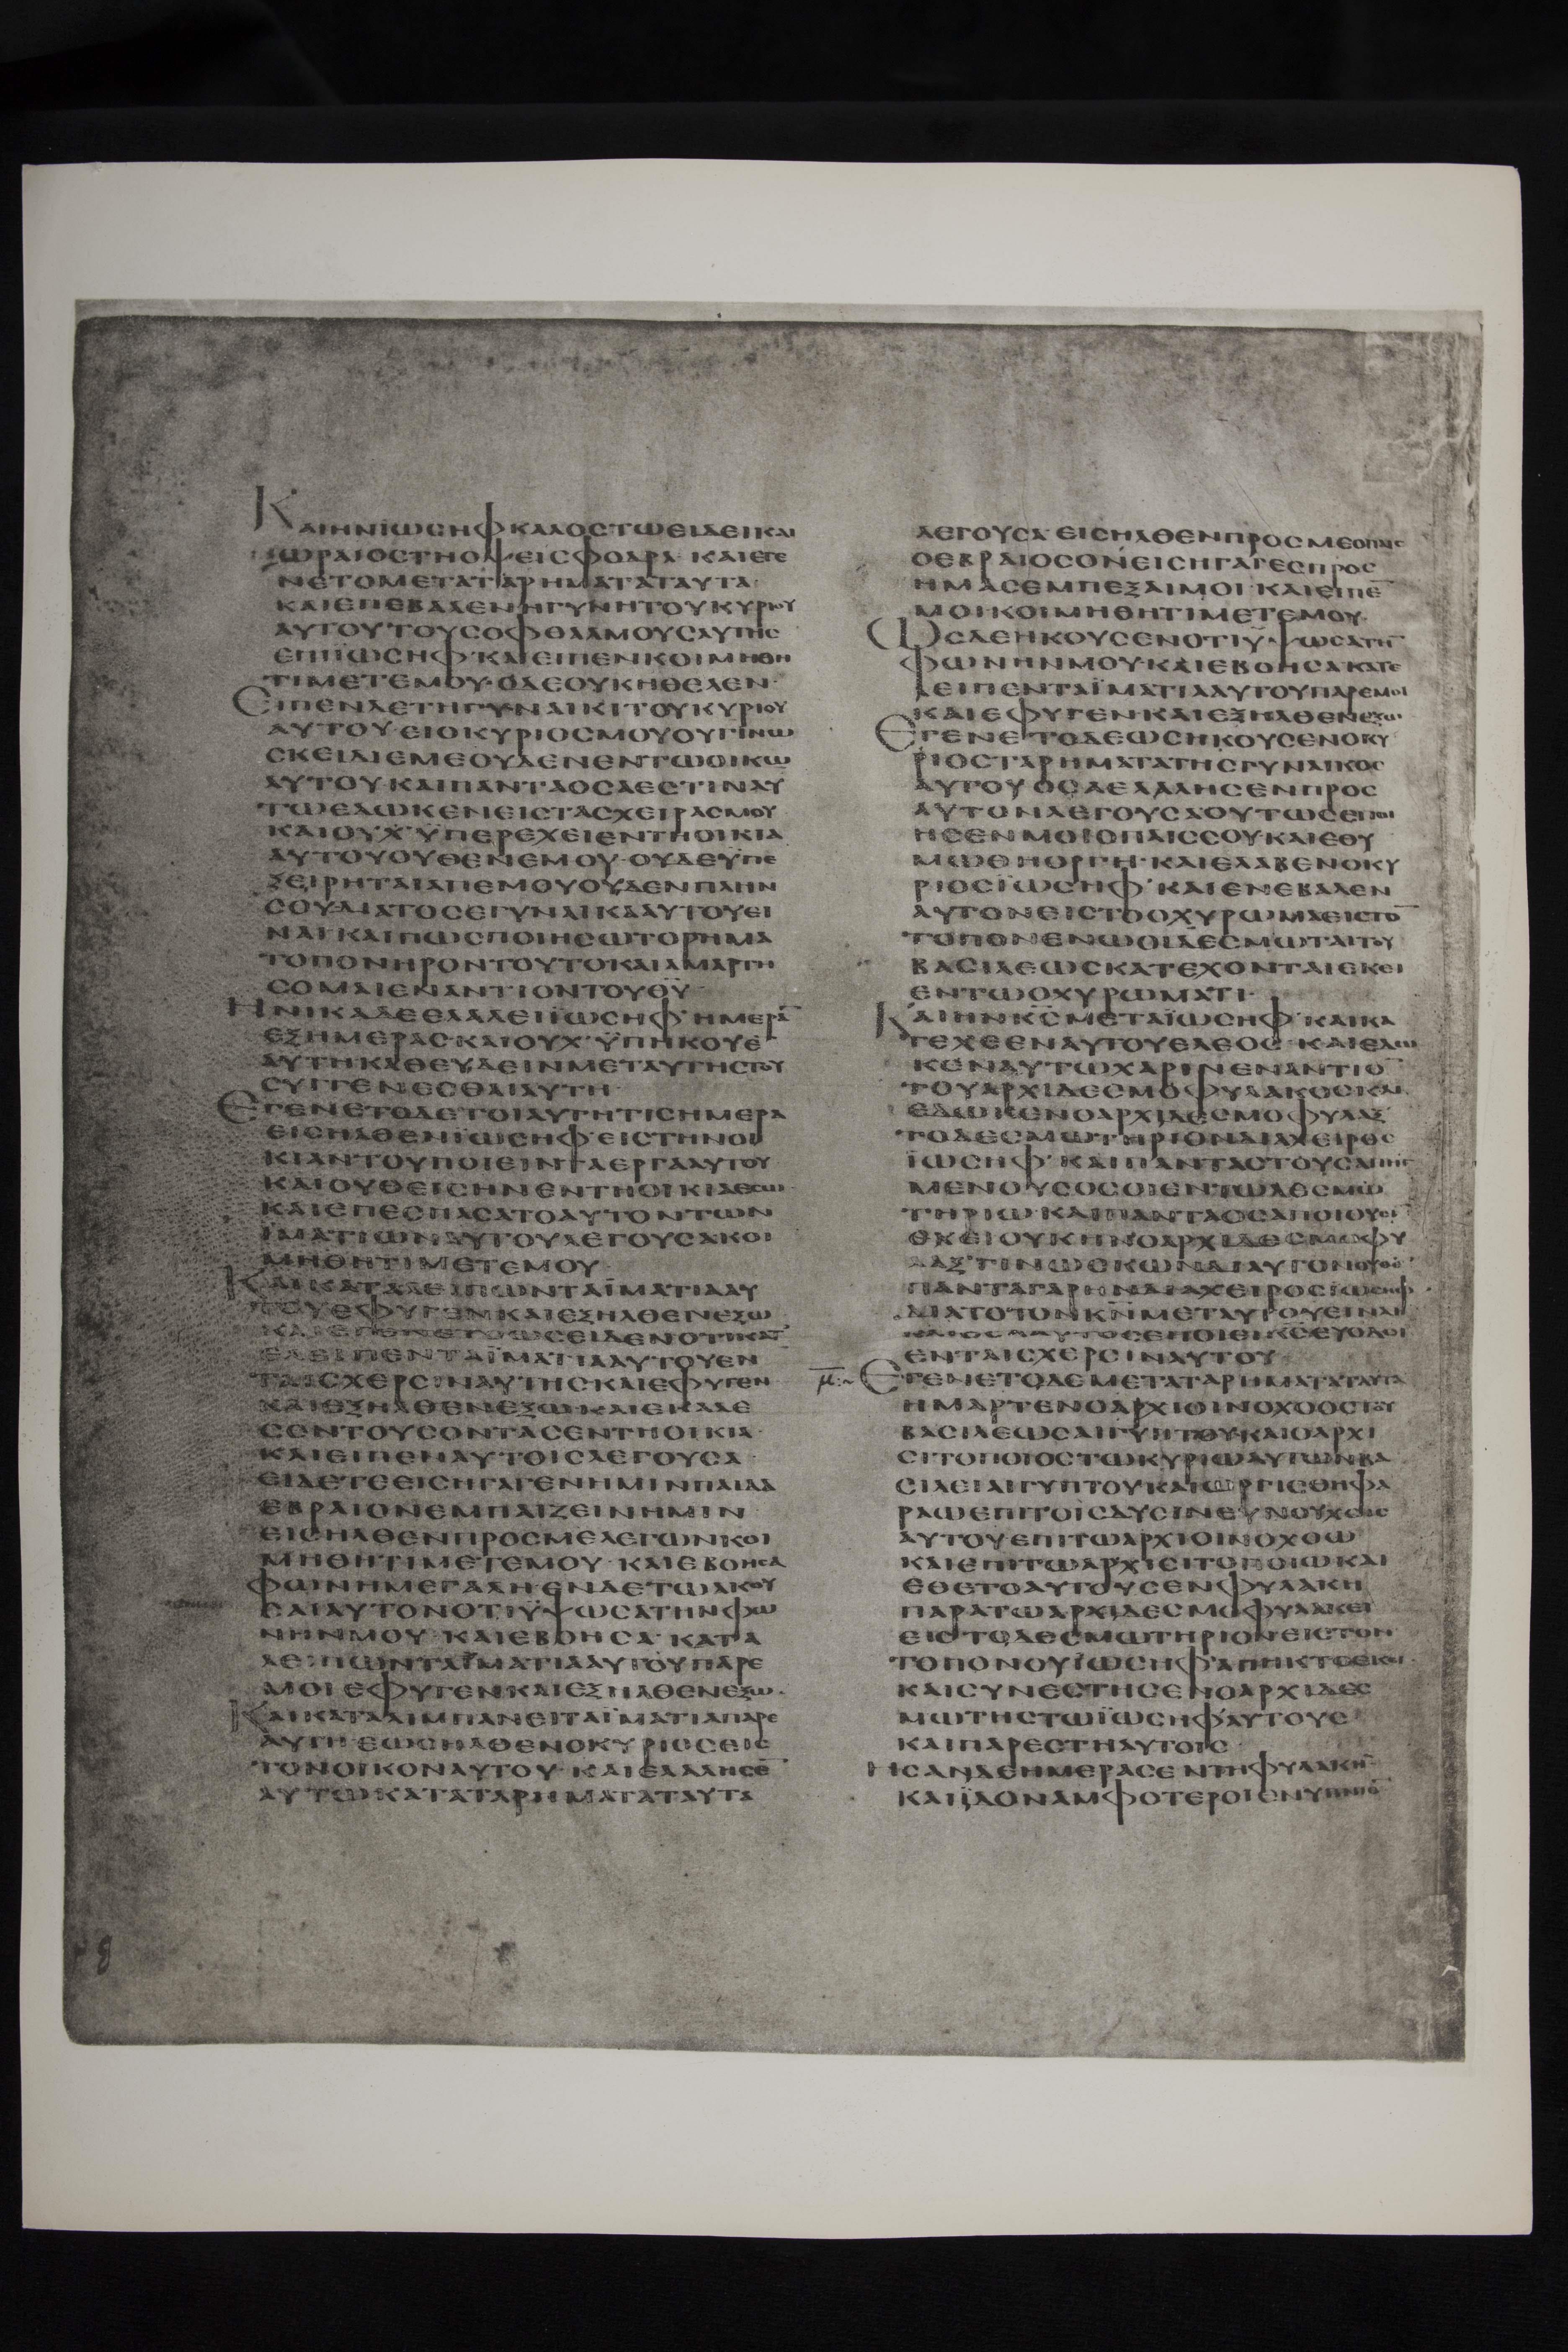 ΚΑΙΗΝΪΩΣΗΦΚΑΛΟΣΤΩΕΙΔΕΙΚΑΙ
ΩΡΑΙΟΣΤΗΟΨΕΙΣΦΟΔΡΑ· ΚΑΙΕΓΕ
ΝΕΤΟΜΕΤΑΤΑΡΗΜΑΤΑΤΑΥΤΑ·
ΚΑΙΕΠΕΒΑΛΕΝΗΓΥΝΗΤΟΥΚΥΡΙΟΥ
ΑΥΤΟΥΤΟΥΣΟΦΘΑΛΜΟΥΣΑΥΤΗΣ
ΕΠΙΪΩΣΗΦ·ΚΑΙΕΙΠΕΝΚΟΙΜΗΘΗ
ΤΙΜΕΤΕΜΟΥ·ΟΔΕΟΥΚΗΘΕΛΕΝ·
ΕΙΠΕΝΔΕΤΗΓΥΝΑΙΚΙΤΟΥΚΥΡΙΟΥ
ΑΥΤΟΥ·ΕΙΟΚΥΡΙΟΣΜΟΥΟΥΓΙΝΩ
ΣΚΕΙΔΙΕΜΕΟΥΔΕΝΕΝΤΩΟΙΚΩ
ΑΥΤΟΥΚΑΙΠΑΝΤΑΟΣΑΕΣΤΙΝΑΥ
ΤΩΕΔΩΚΕΝΕΙΣΤΑΣΧΕΙΡΑΣΜΟΥ
ΚΑΙΟΥΧ᾽ΫΠΕΡΕΧΕΙΕΝΤΗΟΙΚΙΑ
ΑΥΤΟΥΟΥΘΕΝΕΜΟΥ·ΟΥΔΕΫΠΕ
ΞΕΙΡΗΤΑΙΑΠΕΜΟΥΟΥΔΕΝΠΛΗΝ
ΣΟΥΔΙΑΤΟΣΕΓΥΝΑΙΚΑΑΥΤΟΥΕΙ
ΝΑΙ·ΚΑΙΠΩΣΠΟΙΗΣΩΤΟΡΗΜΑ
ΤΟΠΟΝΗΡΟΝΤΟΥΤΟΚΑΙΑΜΑΡΤΗ
ΣΟΜΑΙΕΝΑΝΤΙΟΝΤΟΥΘΥ
ΗΝΙΚΑΔΕΕΛΑΛΕΙΪΩΣΗΦ᾽ΗΜΕΡΑ̅
ΕΞΗΜΕΡΑΣΚΑΙΟΥΧ᾽ΫΠΗΚΟΥΕ
ΑΥΤΗΚΑΘΕΥΔΕΙΝΜΕΤΑΥΤΗΣΤΟΥ
ΣΥΓΓΕΝΕΣΘΑΙΑΥΤΗ·
ΕΓΕΝΕΤΟΔΕΤΟΙΑΥΤΗΤΙΣΗΜΕΡΑ
ΕΙΣΗΛΘΕΝΪΩΣΗΦ᾽ΕΙΣΤΗΝΟΙ
ΚΙΑΝΤΟΥΠΟΙΕΙΝΤΑΕΡΓΑΑΥΤΟΥ
ΚΑΙΟΥΘΕΙΣΗΝΕΝΤΗΟΙΚΙΑΕΣΩ·
ΚΑΙΕΠΕΣΠΑΣΑΤΟΑΥΤΟΝΤΩΝ
ΪΜΑΤΙΩΝΑΥΤΟΥΛΕΓΟΥΣΑΚΟΙ
ΜΗΘΗΤΙΜΕΤΕΜΟΥ·
ΚΑΙΚΑΤΑΛΕΙΠΩΝΤΑΪΜΑΤΙΑΑΥ
ΤΟΥΕΦΥΓΕΝΚΑΙΕΞΗΛΘΕΝΕΞΩ
ΚΑΙΕΓΕΝΕΤΟΩΣΕΙΔΕΝΟΤΙΚΑΤ
ΕΛΕΙΠΕΝΤΑΪΜΑΤΙΑΑΥΤΟΥΕΝ
ΤΑΙΣΧΕΡΣΙΝΑΥΤΗΣΚΑΙΕΦΥΓΕΝ·
ΚΑΙΕΞΗΛΘΕΝΕΞΩ·ΚΑΙΕΚΑΛΕ
ΣΕΝΤΟΥΣΟΝΤΑΣΕΝΤΗΟΙΚΙΑ·
ΚΑΙΕΙΠΕΝΑΥΤΟΙΣΛΕΓΟΥΣΑ·
ΕΙΔΕΤΕΕΙΣΗΓΑΓΕΝΗΜΙΝΠΑΙΔΑ
ΕΒΡΑΙΟΝΕΜΠΑΙΖΕΙΝΗΜΙΝ·
ΕΙΣΗΛΘΕΝΠΡΟΣΜΕΛΕΓΩΝΚΟΙ
ΜΗΘΗΤΙΜΕΤΕΜΟΥ·ΚΑΙΕΒΟΗΣΑ
ΦΩΝΗΜΕΓΑΛΗΕΝΔΕΤΩΑΚΟΥ
ΣΑΙΑΥΤΟΝΟΤΙΫΨΩΣΑΤΗΝΦΩ
ΝΗΝΜΟΥ·ΚΑΙΕΒΟΗΣΑ·ΚΑΤΑ
ΛΕΙΠΩΝΤΑΪΜΑΤΙΑΑΥΤΟΥΠΑΡΕ
ΜΟΙΕΦΥΓΕΝΚΑΙΕΞΗΛΘΕΝΕΞΩ·
ΚΑΙΚΑΤΑΛΙΜΠΑΝΕΙΤΑΪΜΑΤΙΑΠΑΡΕ
ΑΥΤΗ·ΕΩΣΗΛΘΕΝΟΚΥΡΙΟΣΕΙΣ
ΤΟΝΟΙΚΟΝΑΥΤΟΥ·ΚΑΙΕΛΑΛΗΣΕ̅
ΑΥΤΩΚΑΤΑΤΑΡΗΜΑΤΑΤΑΥΤΑ
ΛΕΓΟΥΣΑ·ΕΙΣΗΛΘΕΝΠΡΟΣΜΕΟΠΑΙΣ
ΟΕΒΡΑΙΟΣΟΝΕΙΣΗΓΑΓΕΣΠΡΟΣ
ΗΜΑΣΕΜΠΕΞΑΙΜΟΙ·ΚΑΙΕΙΠΕ̅
ΜΟΙΚΟΙΜΗΘΗΤΙΜΕΤΕΜΟΥ·
ΩΣΔΕΗΚΟΥΣΕΝΟΤΙΫΨΩΣΑΤΗ̅
ΦΩΝΗΝΜΟΥ·ΚΑΙΕΒΟΗΣΑΚΑΤΕ
ΛΕΙΠΕΝΤΑΪΜΑΤΙΑΑΥΤΟΥΠΑΡΕΜΟΙ
ΚΑΙΕΦΥΓΕΝΚΑΙΕΞΗΛΘΕΝΕΞΩ·
ΕΓΕΝΕΤΟΔΕΩΣΗΚΟΥΣΕΝΟΚΥ
ΡΙΟΣΤΑΡΗΜΑΤΑΤΗΣΓΥΝΑΙΚΟΣ
ΑΥΤΟΥΟΣΑΕΛΑΛΗΣΕΝΠΡΟΣ
ΑΥΤΟΝΛΕΓΟΥΣΑΟΥΤΩΣΕΠΟΙ
ΗΣΕΝΜΟΙΟΠΑΙΣΣΟΥ·ΚΑΙΕΘΥ
ΜΩΘΗΟΡΓΗ·ΚΑΙΕΛΑΒΕΝΟΚΥ
ΡΙΟΣΪΩΣΗΦ᾽ΚΑΙΕΝΕΒΑΛΕΝ
ΑΥΤΟΝΕΙΣΤΟΟΧΥΡΩΜΑΕΙΣΤΟ̅
ΤΟΠΟΝΕΝΩΟΙΔΕΣΜΩΤΑΙΤΟΥ
ΒΑΣΙΛΕΩΣΚΑΤΕΧΟΝΤΑΙΕΚΕΙ
ΕΝΤΩΟΧΥΡΩΜΑΤΙ·
ΚΑΙΗΝΚ̅Σ̅ΜΕΤΑΪΩΣΗΦ᾽ΚΑΙΚΑ
ΤΕΧΕΕΝΑΥΤΟΥΕΛΕΟΣ·ΚΑΙΕΔΩ
ΚΕΝΑΥΤΩΧΑΡΙΝΕΝΑΝΤΙΟ̅
ΤΟΥΑΡΧΙΔΕΣΜΟΦΥΛΑΚΟΣΚΑΙ
ΕΔΩΚΕΝΟΑΡΧΙΔΕΣΜΟΦΥΛΑΞ
ΤΟΔΕΣΜΩΤΗΡΙΟΝΔΙΑΧΕΙΡΟΣ
ΪΩΣΗΦ᾽ΚΑΙΠΑΝΤΑΣΤΟΥΣΑΠΗΓ
ΜΕΝΟΥΣΟΣΟΙΕΝΤΩΔΕΣΜΩ
ΤΗΡΙΩ·ΚΑΙΠΑΝΤΑΟΣΑΠΟΙΟΥΣΙ̅
ΕΚΕΙΟΥΚΗΝΟΑΡΧΙΔΕΣΜΟΦΥ
ΛΑΞΓΙΝΩΣΚΩΝΔΙΑΥΤΟΝΟΥΘΕ̅
ΠΑΝΤΑΓΑΡΗΝΔΙΑΧΕΙΡΟΣΪΩΣΗΦ·
ΔΙΑΤΟΤΟΝΚ̅Ν̅ΜΕΤΑΥΤΟΥΕΙΝΑΙ
ΚΑΙΟΣΑΑΥΤΟΣΕΠΟΙΕΙΚ̅Σ̅ΕΥΟΔΟΙ
ΕΝΤΑΙΣΧΕΡΣΙΝΑΥΤΟΥ·
μ̅:~ ΕΓΕΝΕΤΟΔΕΜΕΤΑΤΑΡΗΜΑΤΑΤΑΥΤΑ
ΗΜΑΡΤΕΝΟΑΡΧΙΟΙΝΟΧΟΟΣΤΟΥ
ΒΑΣΙΛΕΩΣΑΙΓΥΠΤΟΥ·ΚΑΙΟΑΡΧΙ
ΣΙΤΟΠΟΙΟΣΤΩΚΥΡΙΩΑΥΤΩΝΒΑ
ΣΙΛΕΙΑΙΓΥΠΤΟΥ·ΚΑΙΩΡΓΙΣΘΗΦΑ
ΡΑΩΕΠΙΤΟΙΣΔΥΣΙΝΕΥΝΟΥΧΟΙΣ
ΑΥΤΟΥΕΠΙΤΩΑΡΧΙΟΙΝΟΧΟΩ
ΚΑΙΕΠΙΤΩΑΡΧΙΣΙΤΟΠΟΙΩΚΑΙ
ΕΘΕΤΟΑΥΤΟΥΣΕΝΦΥΛΑΚΗ
ΠΑΡΑΤΩΑΡΧΙΔΕΣΜΟΦΥΛΑΚΕΙ
ΕΙΣΤΟΔΕΣΜΩΤΗΡΙΟΝΕΙΣΤΟΝ
ΤΟΠΟΝΟΥΪΩΣΗΦ᾽ΑΠΗΚΤΟΕΚΕΙ·
ΚΑΙΣΥΝΕΣΤΗΣΕΝΟΑΡΧΙΔΕΣ
ΜΩΤΗΣΤΩΪΩΣΗΦ᾽ΑΥΤΟΥΣ
ΚΑΙΠΑΡΕΣΤΗΑΥΤΟΙΣ·
ΗΣΑΝΔΕΗΜΕΡΑΣΕΝΤΗΦΥΛΑΚΗ·
ΚΑΙΪΔΟΝΑΜΦΟΤΕΡΟΙΕΝΥΠΝΙΟ̅